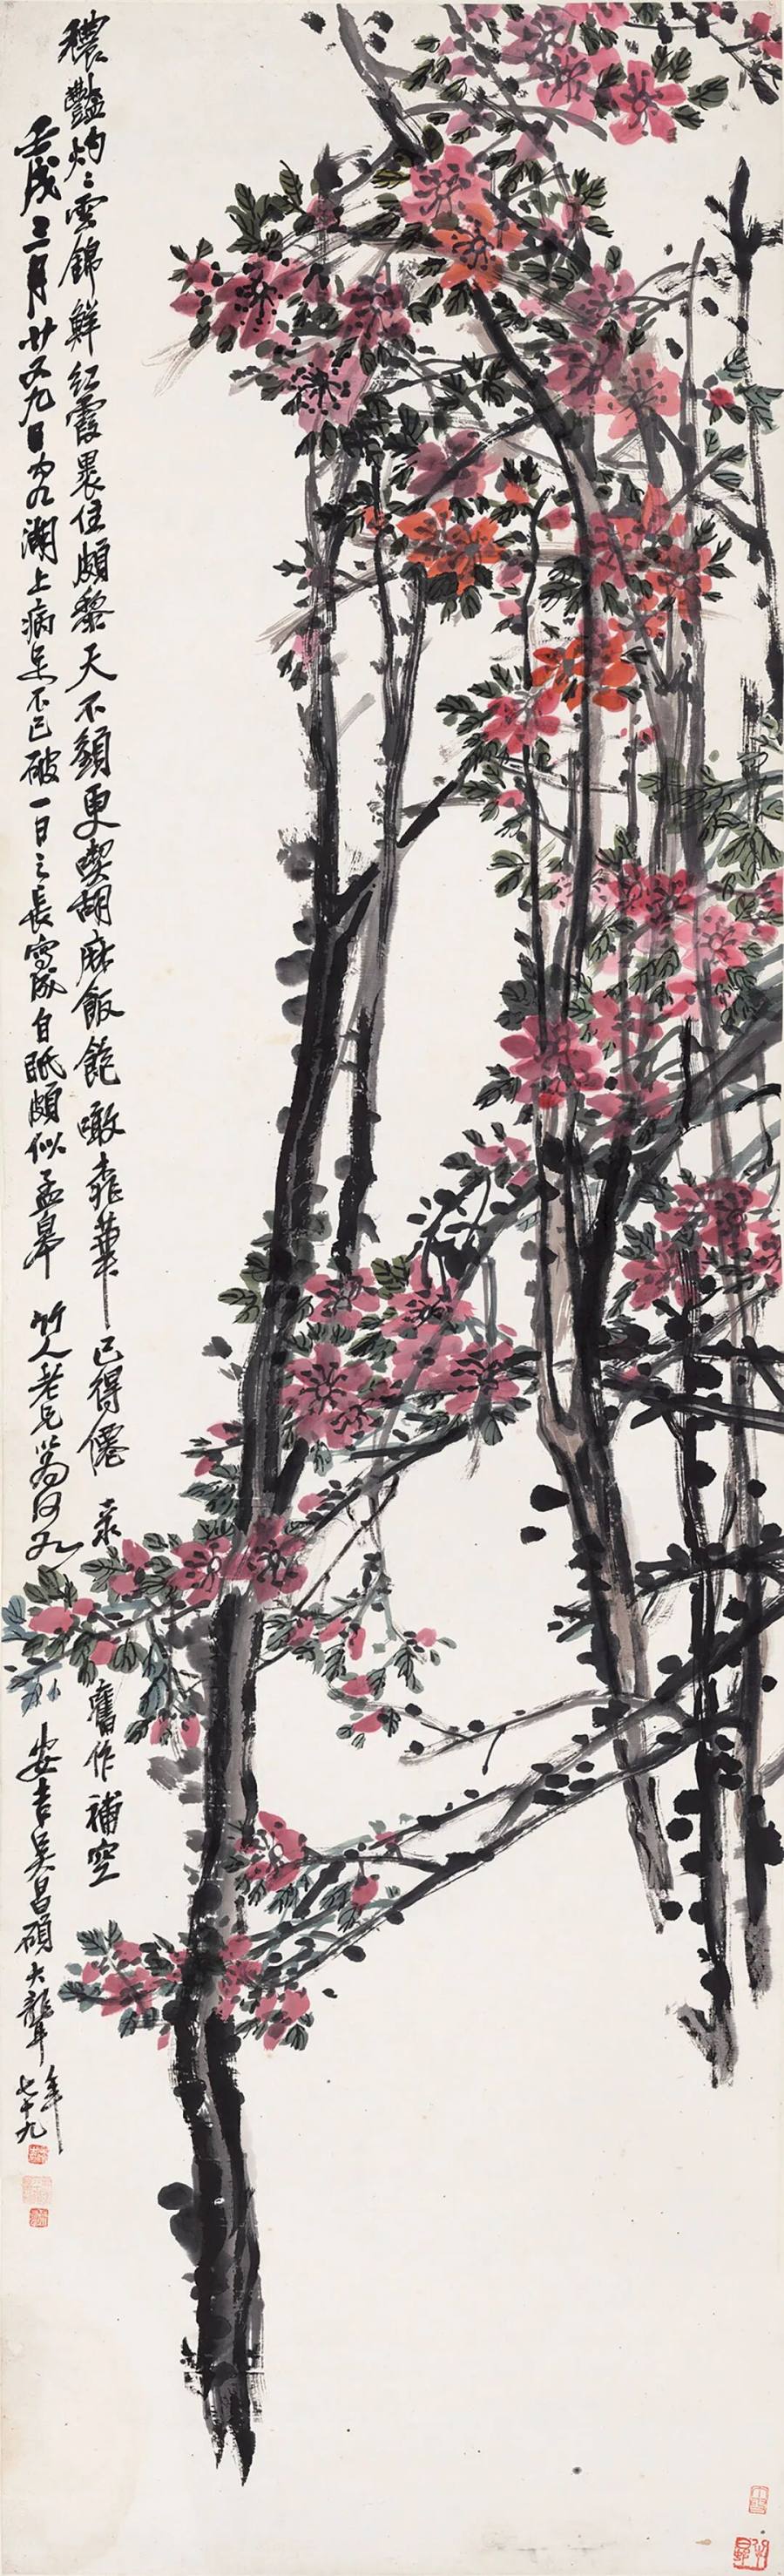 穠豔灼〻雲錦鮮紅霞裹住頗黎天不須更喫胡麻飯飽噉桃華已得僊 彔舊作補空
壬戌三月廿又九日客滬上病足不已破一日之長寫成自眂頗似孟皋 竹人老兄以為何如 安吉吳昌碩大聾年七十九